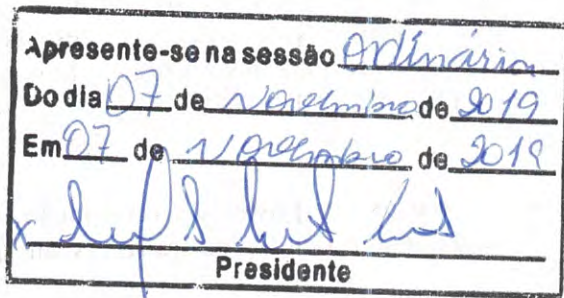 Apresente-se na sessão Ordinária
Do dia 07 de Novembro de 2019
Em 07 de Novembro de 2019
x
Presidente